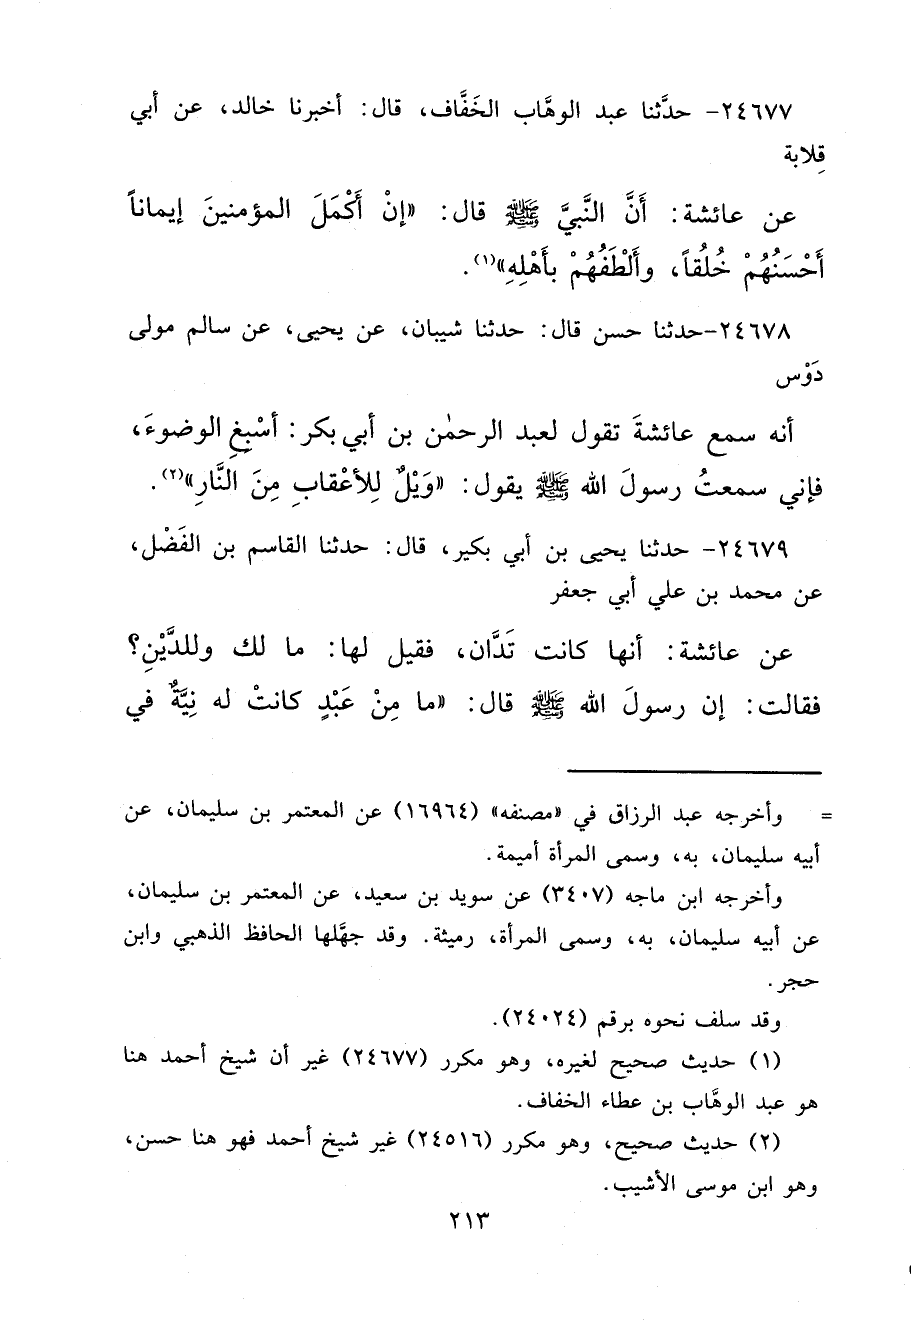 ٢٤٦٧٧- حدَّثنا عبد الوهَّاب الخَفَّاف، قال: أخبرنا خالد، عن أبي
قِلابة
عن عائشة: أَنَّ النَّبيَّ ﷺ قال: «إنْ أَكْمَلَ المؤمنينَ إيماناً
أَحْسَنُهُمْ خُلُقاً، وأَلْطَفُهُمْ بأَهْلِهِ»(١).
٢٤٦٧٨-حدثنا حسن قال: حدثنا شيبان، عن يحيى، عن سالم مولى
دَوْس
أنه سمع عائشةَ تقول لعبد الرحمٰن بن أبي بكر: أسْبِغِ الوضوءَ،
فإني سمعتُ رسولَ الله ﷺ يقول: «وَيْلٌ لِلأعْقابِ مِنَ النَّارِ»(٢).
٢٤٦٧٩- حدثنا يحيى بن أبي بكير، قال: حدثنا القاسم بن الفَضْل،
عن محمد بن علي أبي جعفر
عن عائشة: أنها كانت تَدَّان، فقيل لها: ما لك وللدَّيْنِ؟
فقالت: إن رسولَ الله ﷺ قال: «ما مِنْ عَبْدٍ كانتْ له نِيَّةٌ في
= وأخرجه عبد الرزاق في «مصنفه» (١٦٩٦٤) عن المعتمر بن سليمان، عن
أبيه سليمان، به، وسمى المرأة أميمة.
وأخرجه ابن ماجه (٣٤٠٧) عن سويد بن سعيد، عن المعتمر بن سليمان،
عن أبيه سليمان، به، وسمى المرأة، رميثة. وقد جهَّلها الحافظ الذهبي وابن
حجر.
وقد سلف نحوه برقم (٢٤٠٢٤).
(١) حديث صحيح لغيره، وهو مكرر (٢٤٦٧٧) غير أن شيخ أحمد هنا
هو عبد الوهَّاب بن عطاء الخفاف.
(٢) حديث صحيح، وهو مكرر (٢٤٥١٦) غير شيخ أحمد فهو هنا حسن،
وهو ابن موسى الأشيب.
٢١٣